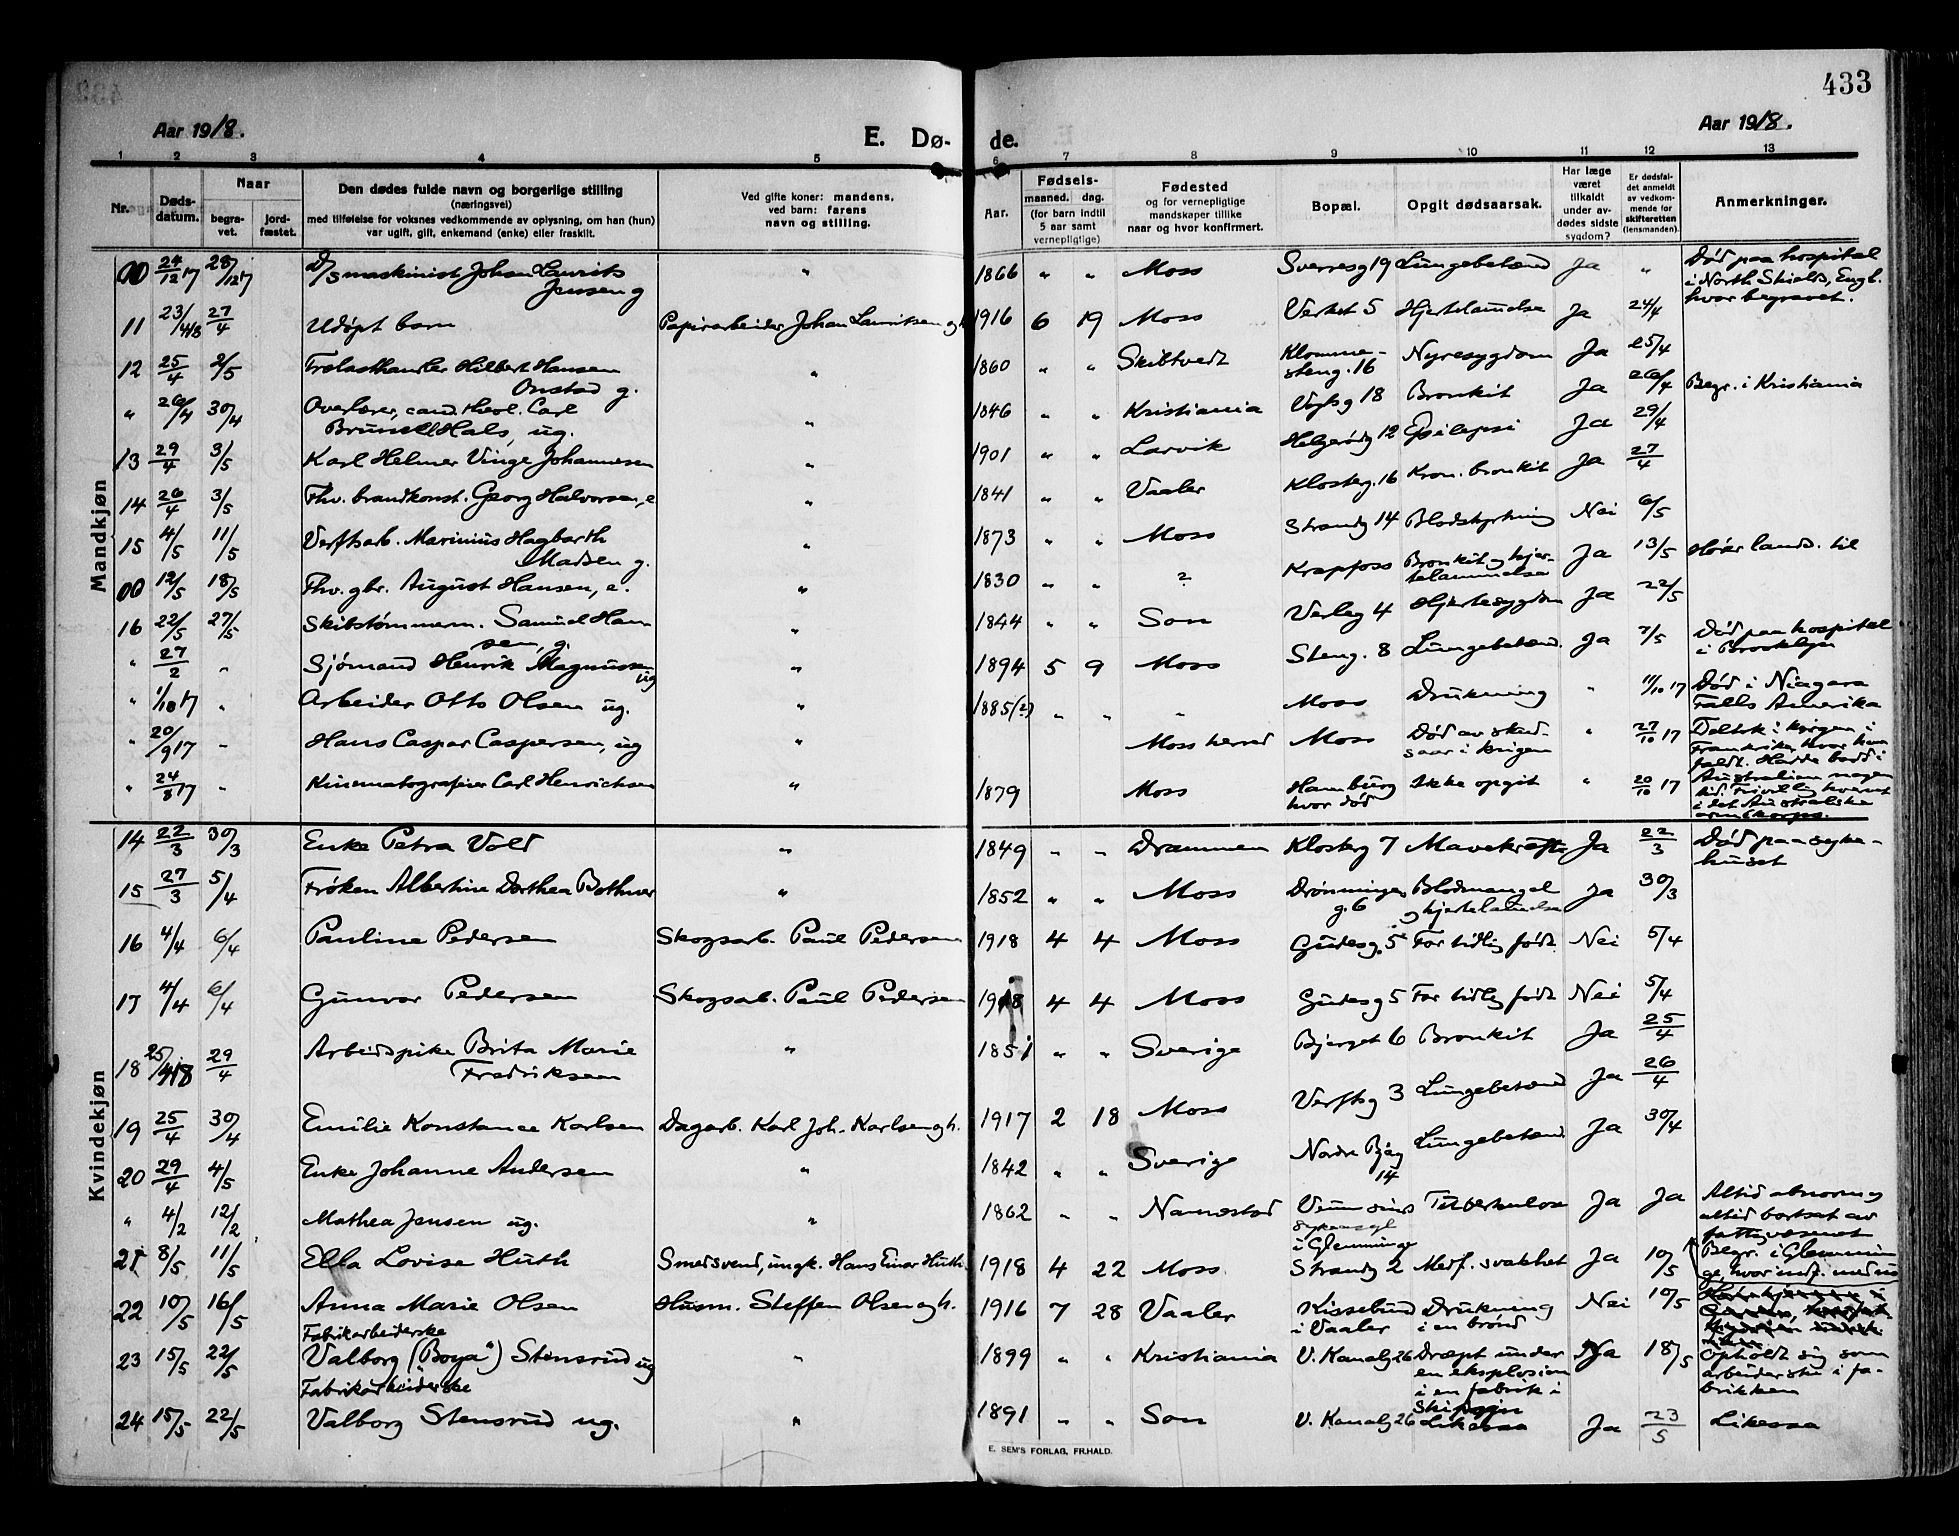 433
Aar 1918.
E. Dø-
de.
Aar 1918.
1 2 3 4 5 6 7 8 9 10 11 12 13
Nr.
Døds-
datum.
Naar
begra-
vet.
jord-
fæstet.
Den dødes fulde navn og borgerlige stilling
(næringsvei)
med tilføielse for voksnes vedkommende av oplysning, om han (hun)
var ugift, gift, enkemand (enke) eller fraskilt.
Ved gifte koner: mandens,
ved barn: farens
navn og stilling.
Aar.
Fødsels-
maaned. dag.
(for barn indtil
5 aar samt
vernepligtige)
Fødested
og for vernepligtige
mandskaper tillike
naar og hvor konfirmert.
Bopæl.
Opgit dødsaarsak.
Har læge
været
tilkaldt
under av-
dødes sidste
sygdom?
Er dødsfal-
det anmeldt
av vedkom-
mende for
skifteretten
(lensmanden).
Anmerkninger.
Mandkjøn
00 24/12 17 28/12 17 D/S maskinist Johan Laurits Jensen g " 1866 " " Moss Sverresg 19 Lungebetænd Ja " Død paa hospital i North Shields, Engl. hvor begravet.
11 23/4 18 27/4 Udøpt barn Papirarbeider Johan Lauritsen og h 1916 6 19 Moss Verket 5 Hjertelamdse Ja 24/4
12 25/4 2/5 Trelasthandler Hilbert Hansen Onstad g. " 1860 " " Skiltvedt Klommesteng. 16 Nyresygdom Ja 25/4
" 26/4 30/4 Overlærer, cand. theol. Carl Brunell Hals, ug. " 1846 " " Kristiania Vogtsg 18 Bronkit Ja 26/4 Begr. i Kristiania
13 29/4 3/5 Karl Helmer Vinge Johannesen " 1901 " " Larvik Helgerødg 12 Epilepsi Ja 29/4
14 26/4 3/5 Fhv. brandkonst. Georg Halvorsen, e " 1841 " " Vaaler Klosterg. 16 Kron. bronkit Ja 27/4
15 4/5 11/5 Verftsarb. Marinius Hagbarth Madsen g. " 1873 " " Moss Strandg 14 Blodstyrtning Nei 6/5
00 12/5 18/5 Fhv. gbr. August Hansen, e. " 1830 " " ? Krapfoss Bronkit og hjertelammelse Ja 13/5 Hører lands. til
16 22/5 27/5 Skibstømmerm. Samuel Hansen, g. " 1844 " " Son Verleg 4 Hjertesygdom Ja 22/5
" 27/2 " Sjømand Henrik Magnussen ug " 1894 5 9 Moss Steng. 8 Lungebetænd. Ja 7/5 Død paa hospital i Brooklyn
" 1/10 17 " Arbeider Otto Olsen ug. " 1885 (?) " " " Moss Drukning " 11/10 17 Død i Niagara Falls Amerika
" 20/9 17 " Hans Caspar Caspersen, ug " Moss herred Moss Død av skudsaar i krigen " 27/10 17 Deltok i krigen i Frankrike hvor han faldt. Hadde bodd i Australien nogen tid. Frivillig hvervet i det Australske armekorps.
" 24/8 17 " Kinematografeier Carl Henrichsen " 1879 Moss Hamburg hvor død Ikke opgit " 20/10 17
Kvindekjøn
14 22/3 30/3 Enke Petra Vold " 1849 " " Drammen Klosterg 7 Mavekræft Ja 22/3 Død paa sykehuset
15 27/3 5/4 Frøken Albertine Dorthea Bothner " 1852 " " Moss Dronningens g. 6 Blodmangel og hjertelamdse Ja 30/3
16 4/4 6/4 Pauline Pedersen Skogsarb. Paul Pedersen 1918 4 4 Moss Gudesg. 5 For tidlig født. Nei 5/4
17 4/4 6/4 Gunvor Pedersen Skogsarb. Paul Pedersen 1918 4 4 Moss Gudesg 5 For tidlig født Nei 5/4
18 25/4 18 29/4 Arbeidspike Brita Marie Fredriksen " 1851 " " Sverige Bjerget 6 Bronkit Ja 25/4
19 25/4 30/4 Emilie Konstance Karlsen Dagarb. Karl Joh. Karlsen og h. 1917 2 18 Moss Verftsg 3 Lungebetænd Ja 26/4
20 29/4 4/5 Enke Johanne Andersen " 1842 " " Sverige Nordre Bjerg 14 Lungebetænd. Ja 30/4
" 4/2 12/2 Mathea Jensen ug. " 1862 " " Nannestad Veum sinds sykeasyl i Glemminge Tuberkulose Ja Ja Altid abnorm og altid bortsat av fattigvæsenet Begr. i Glemminge, hvor indf. med no
21 8/5 11/5 Ella Lovise Huth Smedsvend, ungk. Hans Einar Huth 1918 4 22 Moss Strandg 2 Medf. svakhet Ja 10/5
22 10/5 16/5 Anna Marie Olsen Husm. Steffen Olsen og h. 1916 7 28 Vaaler Kisselund i Vaaler Drukning i en brønd Nei 10/5
23 15/5 22/5 Fabrikarbeiderske Valborg ("Boya") Stensrud ug " 1899 " " Kristiania V. Kanalg 26 Dræpt under en eksplosion i en fabrik i Ja 18/5 opholdt sig som arbeiderske i fabrikken
24 15/5 22/5 Fabrikarbeiderske Valborg Stensrud ug. " 1891 " " Son V. Kanalg 26 Likesaa Ja 23/5 Likesaa
E. SEM'S FORLAG, FR.HALD.